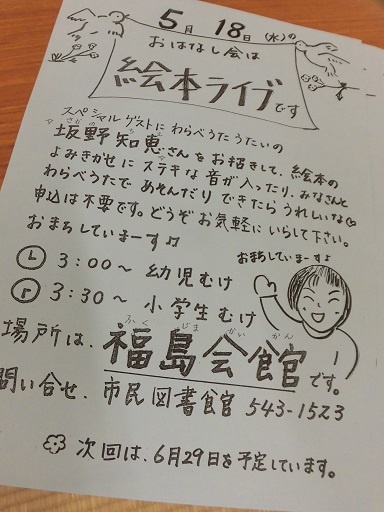 5月18日(水)の
おはなし会は
絵本ライブです
スペシャルゲストに わらべうたうたいの
坂野知恵さんをお招きして、絵本の
さかの ちえ
よみきかせに ステキな音が入ったり、みなさんと
わらべうたで あそんだり できたらうれしいな
申込は不要です。どうぞお気軽にいらして下さい。
おまちしていまーす♪
おまちしていまーす♪
3:00～ 幼児むけ
3:30～ 小学生むけ
ふくしまかいかん
場所は、福島会館です。
問い合せ、市民図書館 543-1523
次回は、6月29日を予定しています。